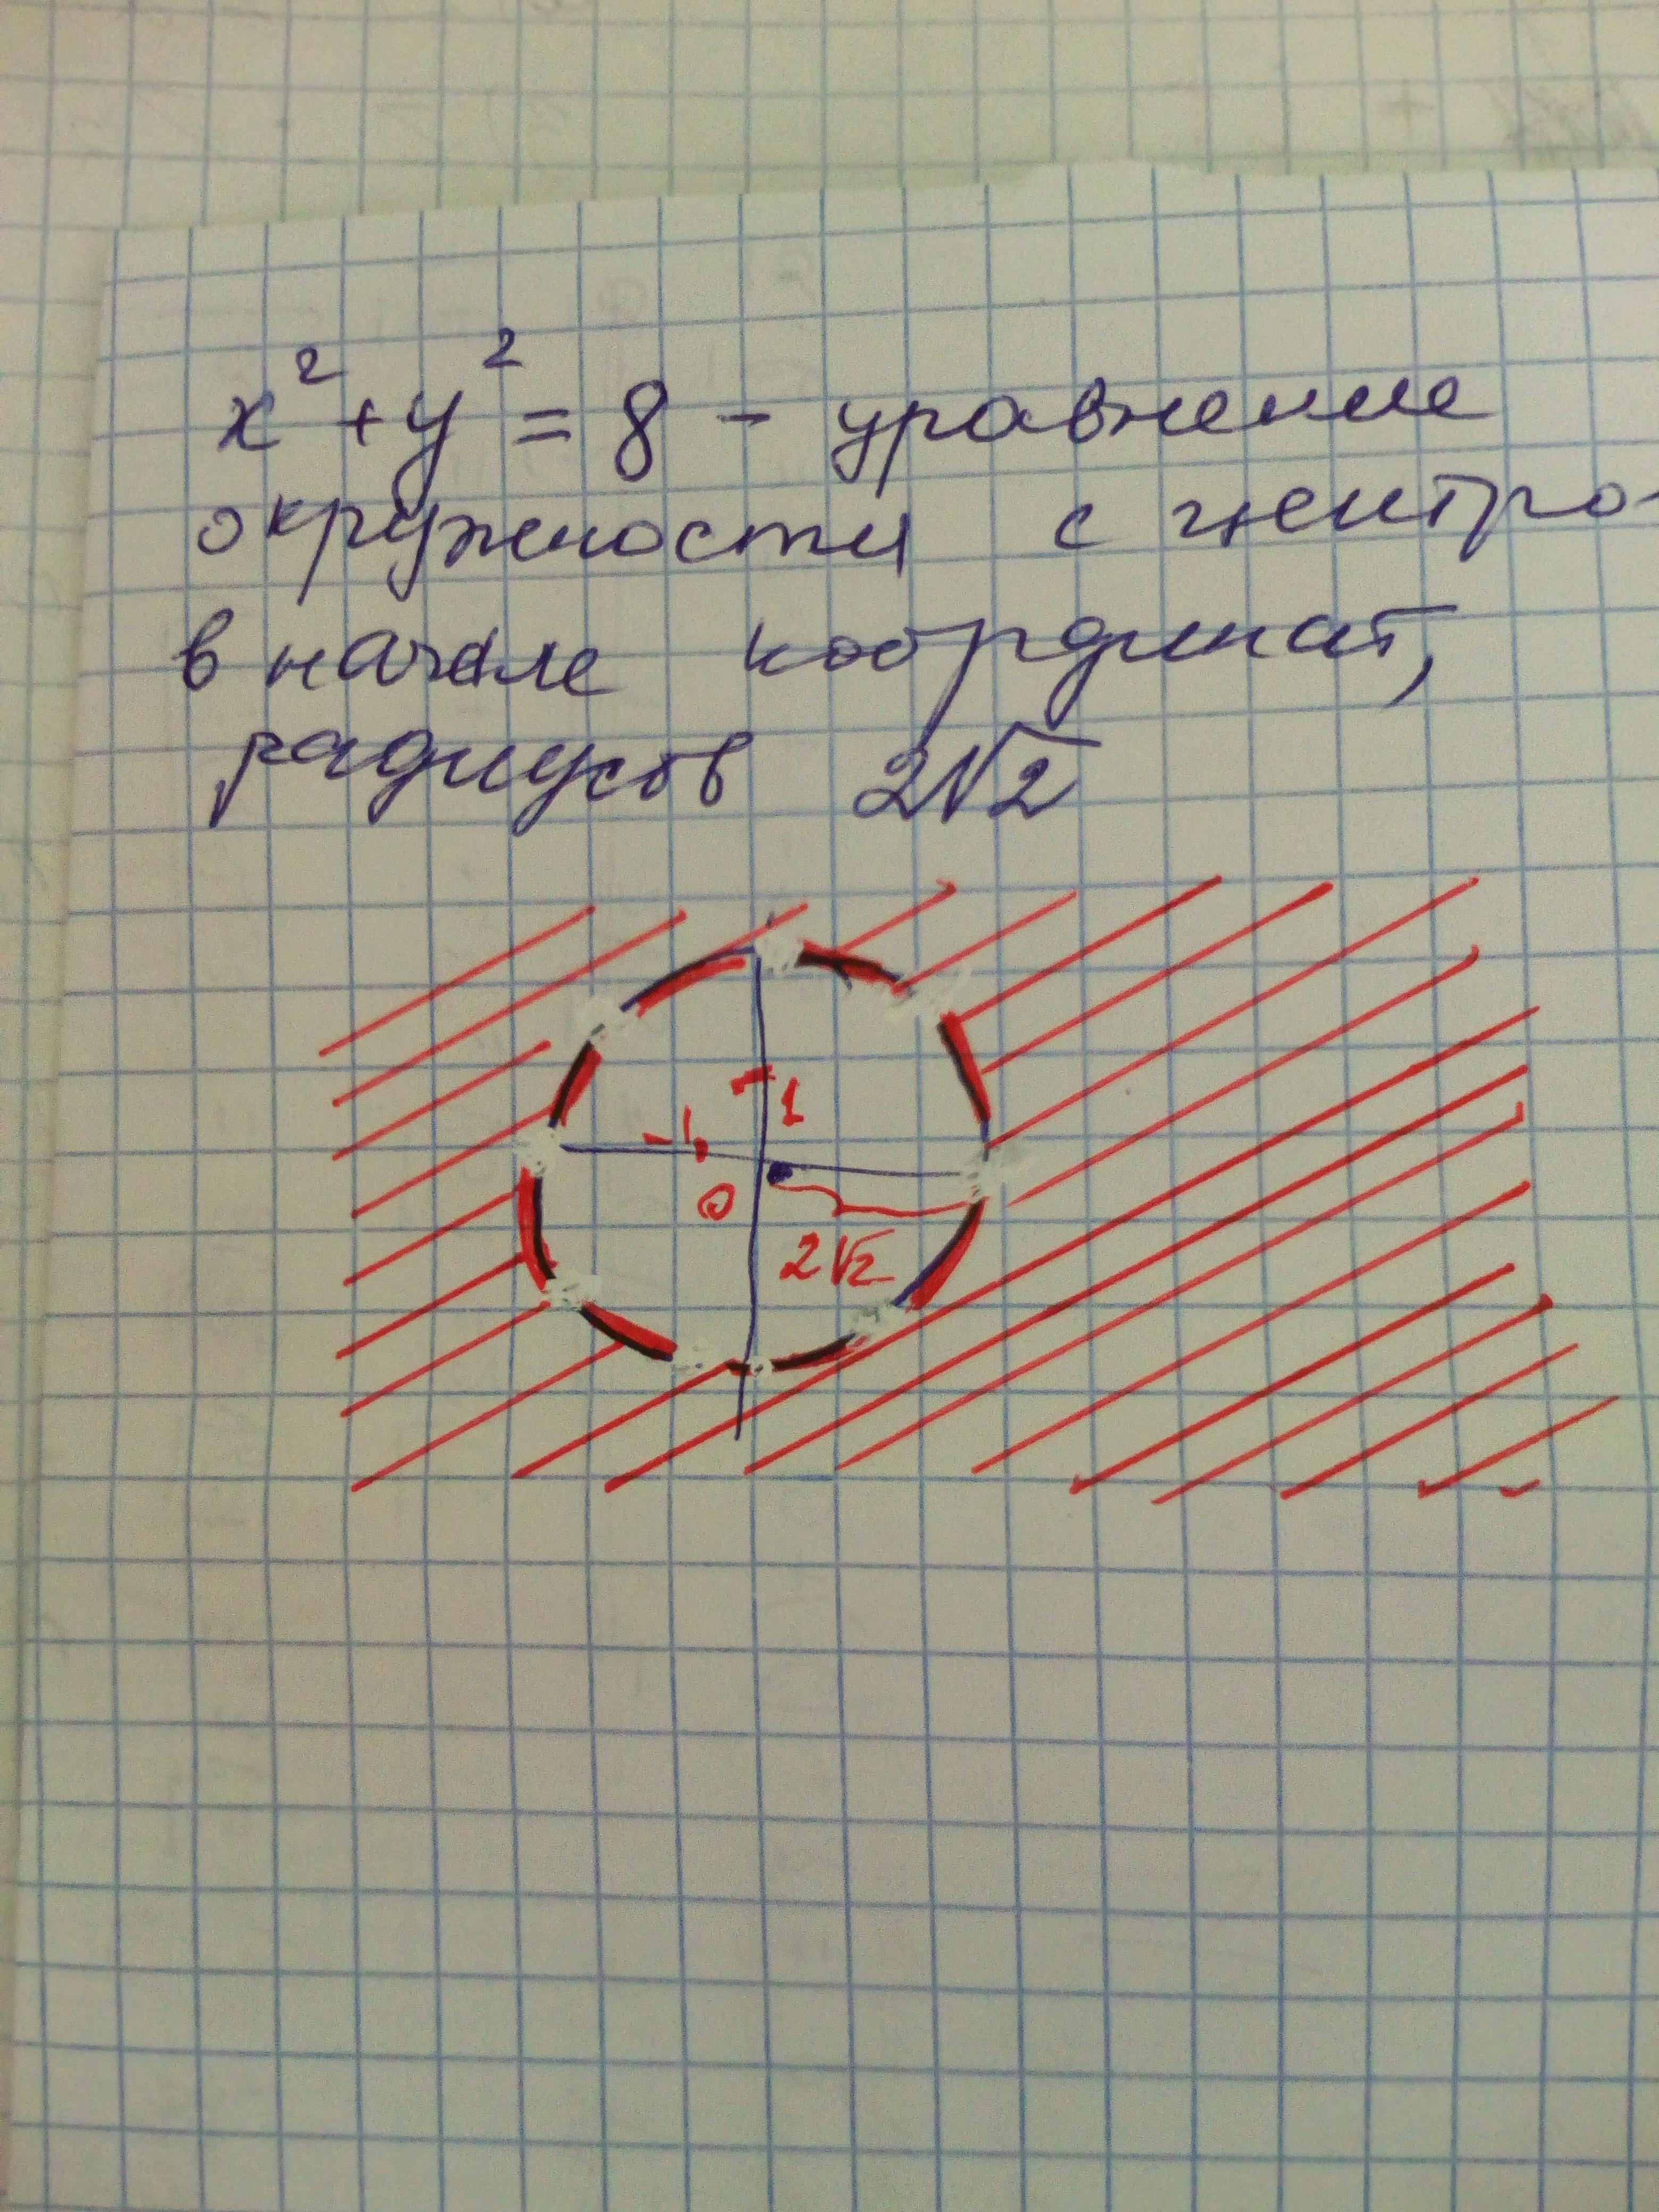 x² + y² = 8 - уравнение
окружности с центро
в начале координат,
радиусов 2√2
1
-1
0
2√2